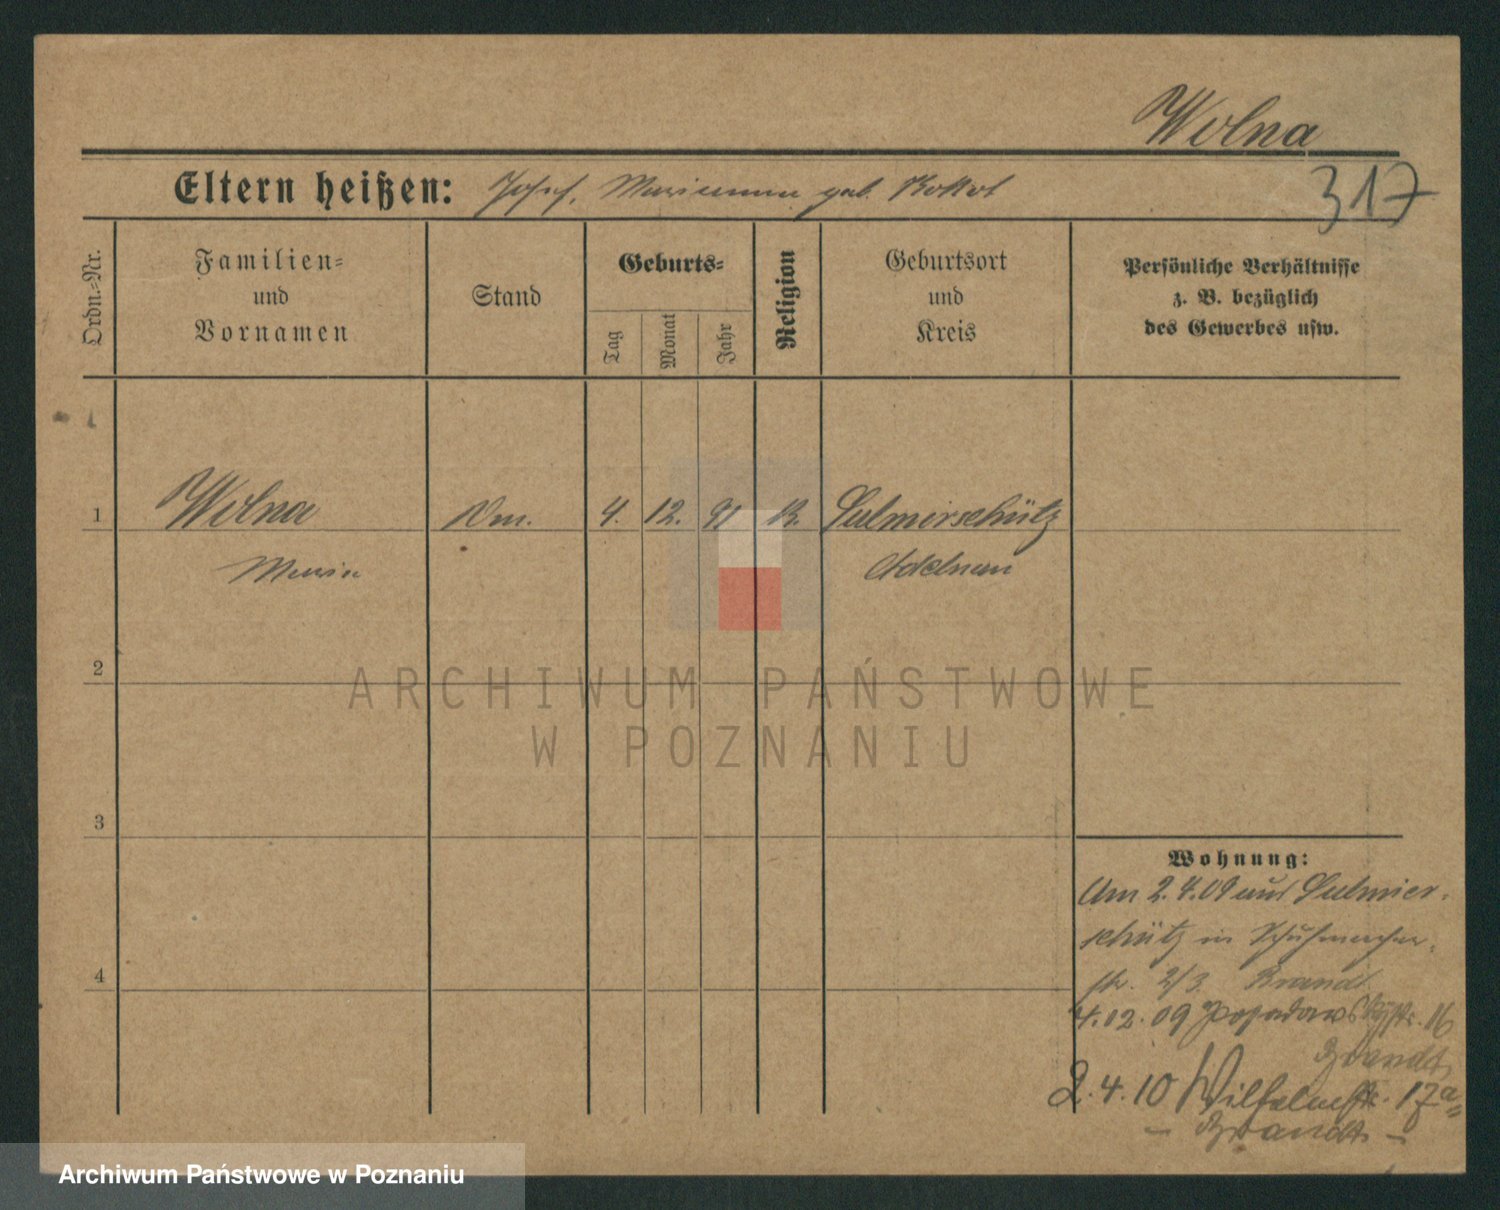 Wolna
Eltern heißen: Josef, Marianna geb. Kottot
317
Ordn.-Nr.
Familien-
und
Vornamen
Stand
Geburts-
Tag
Monat
Jahr
Religion
Geburtsort
und
Kreis
Persönliche Verhältnisse
z. B. bezüglich
des Gewerbes usw.
1 Wolna 4. 12. 91 K. Sulmierschütz
Maria Adelnau
2
3
4
Wohnung:
Am 2.4.09 aus Sulmier-
schütz in Schuhmacher-
str. 2/3. Brandt
4.02.09 Posadowskystr. 16
Brandt
2.4.10 Wilhelmstr. 17a
- Brandt -
ARCHIWUM PAŃSTWOWE
W POZNANIU
Archiwum Państwowe w Poznaniu